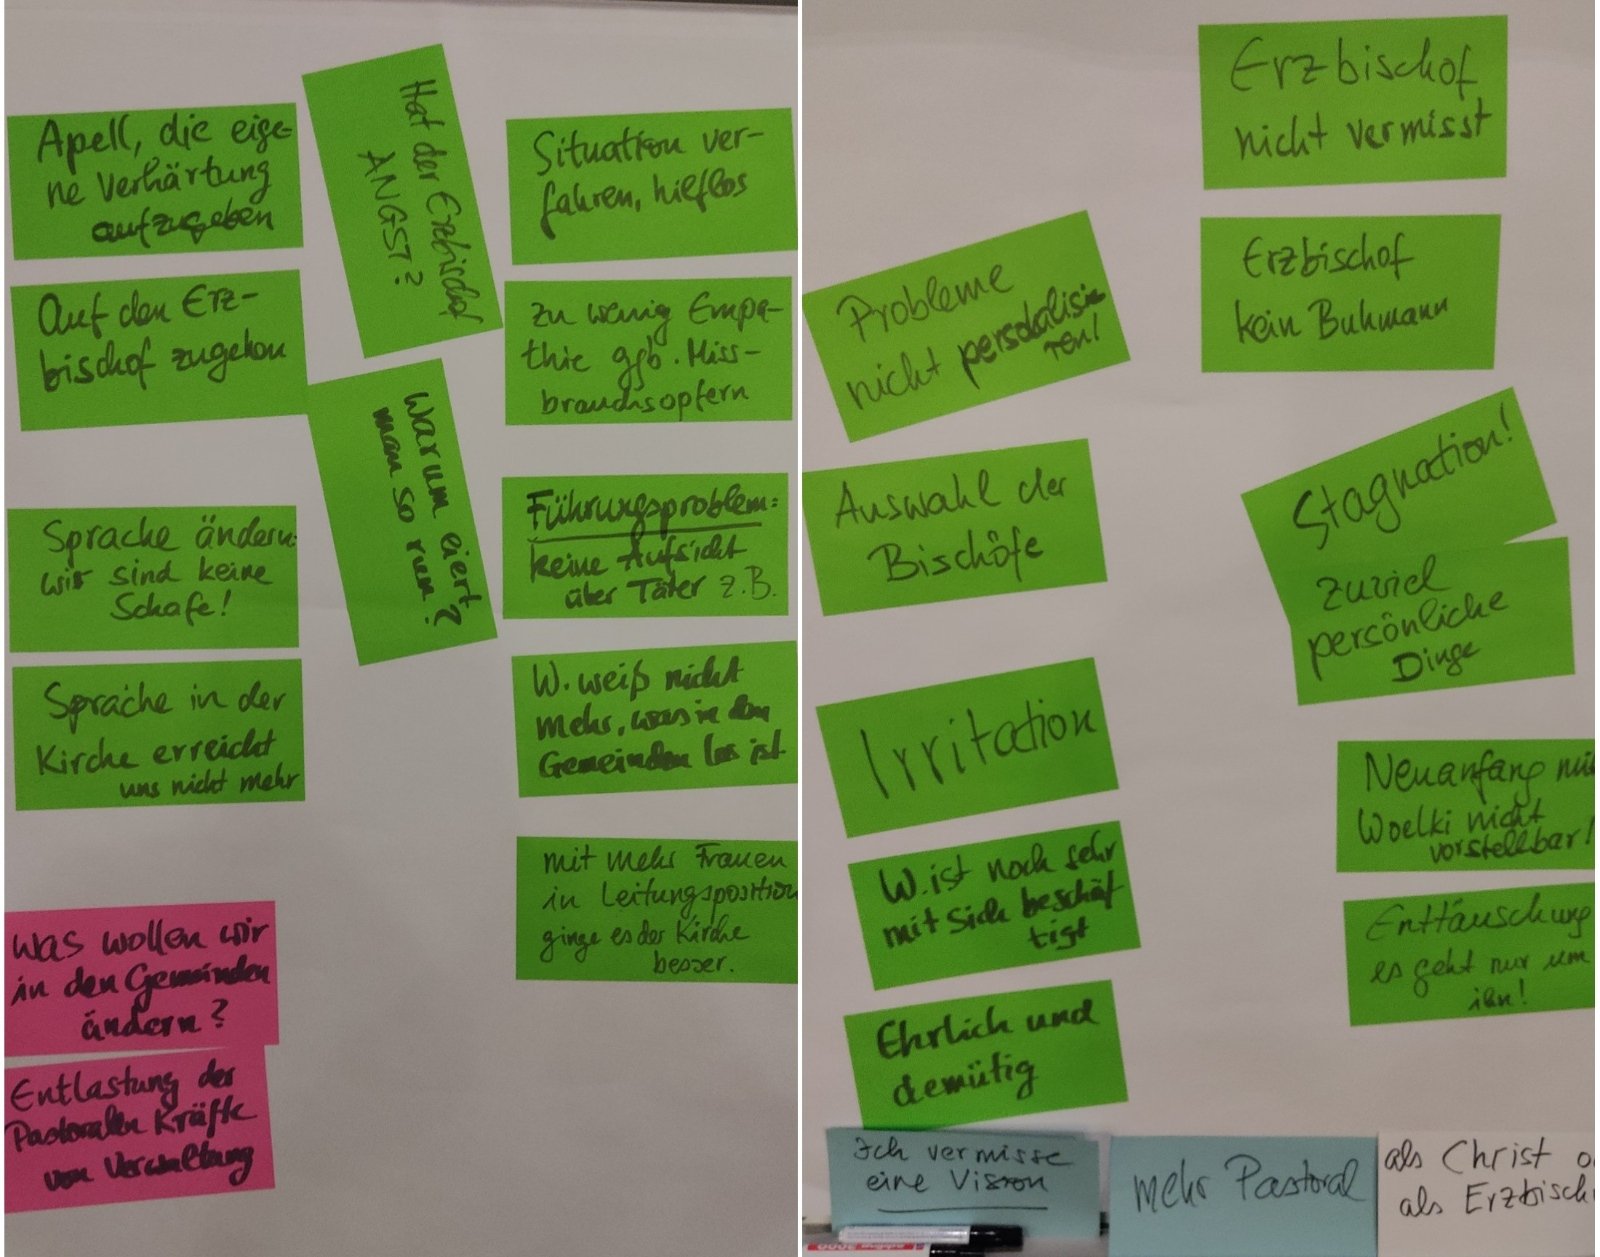 Apell, die eige-
ne Verhärtung
aufzugeben
Auf den Erz-
bischof zugehen
Sprache ändern:
wir sind keine
Schafe!
Sprache in der
Kirche erreicht
uns nicht mehr
Was wollen wir
in den Gemeinden
ändern?
Entlastung der
Pastoralen Kräfte
von Verwaltung
Hat der Erzbischof
ANGST?
Warum eiert
man so rum?
Situation ver-
fahren, hilflos
zu wenig Empa-
thie ggb. Miss-
brauchsopfern
Führungsproblem:
keine Aufsicht
über Täter z.B.
W. weiß nicht
mehr, was in den
Gemeinden los ist
mit mehr Frauen
in Leitungsposition
ginge es der Kirche
besser.
Probleme
nicht personalisie
ren!
Auswahl der
Bischöfe
Irritation
W. ist noch sehr
mit sich beschäf
tigt
Ehrlich und
demütig
Erzbischof
nicht vermisst
Erzbischof
kein Buhmann
Stagnation!
zuviel
persönliche
Dinge
Neuanfang mit
Woelki nicht
vorstellbar!
Enttäuschung
es geht nur um
ihn!
Ich vermisse
eine Vision
mehr Pastoral
als Christ o
als Erzbisch
3000